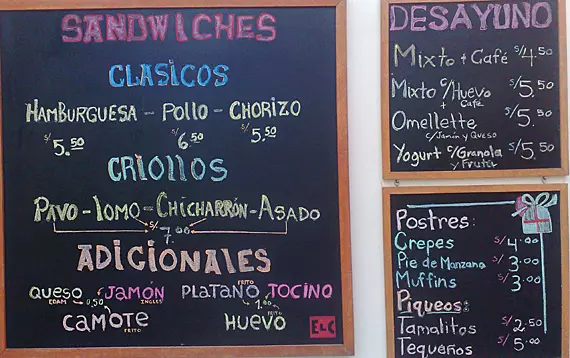 SANDWICHES
CLASICOS
HAMBURGUESA - POLLO - CHORIZO
S/5.50 S/6.50 S/5.50
CRIOLLOS
PAVO - LOMO - CHICHARRÓN - ASADO
S/7.00
ADICIONALES
QUESO EDAM JAMÓN INGLES PLATANO FRITO TOCINO
0.50 1.00
CAMOTE FRITO HUEVO FRITO
ELC
DESAYUNO
Mixto + Café S/4.50
Mixto c/Huevo + Café S/5.50
Omellette S/5.50
c/Jamón y Queso
Yogurt c/Granola y Fruta S/5.50
Postres:
Crepes S/4.00
Pie de Manzana S/3.00
Muffins S/3.00
Piqueos:
Tamalitos S/2.50
Tequeños S/5.00